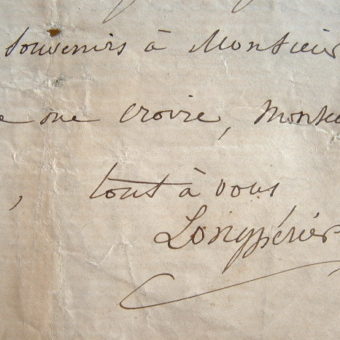 souvenirs à Monsieur
me croire, Monsieu
, tout à vous
Longpérier